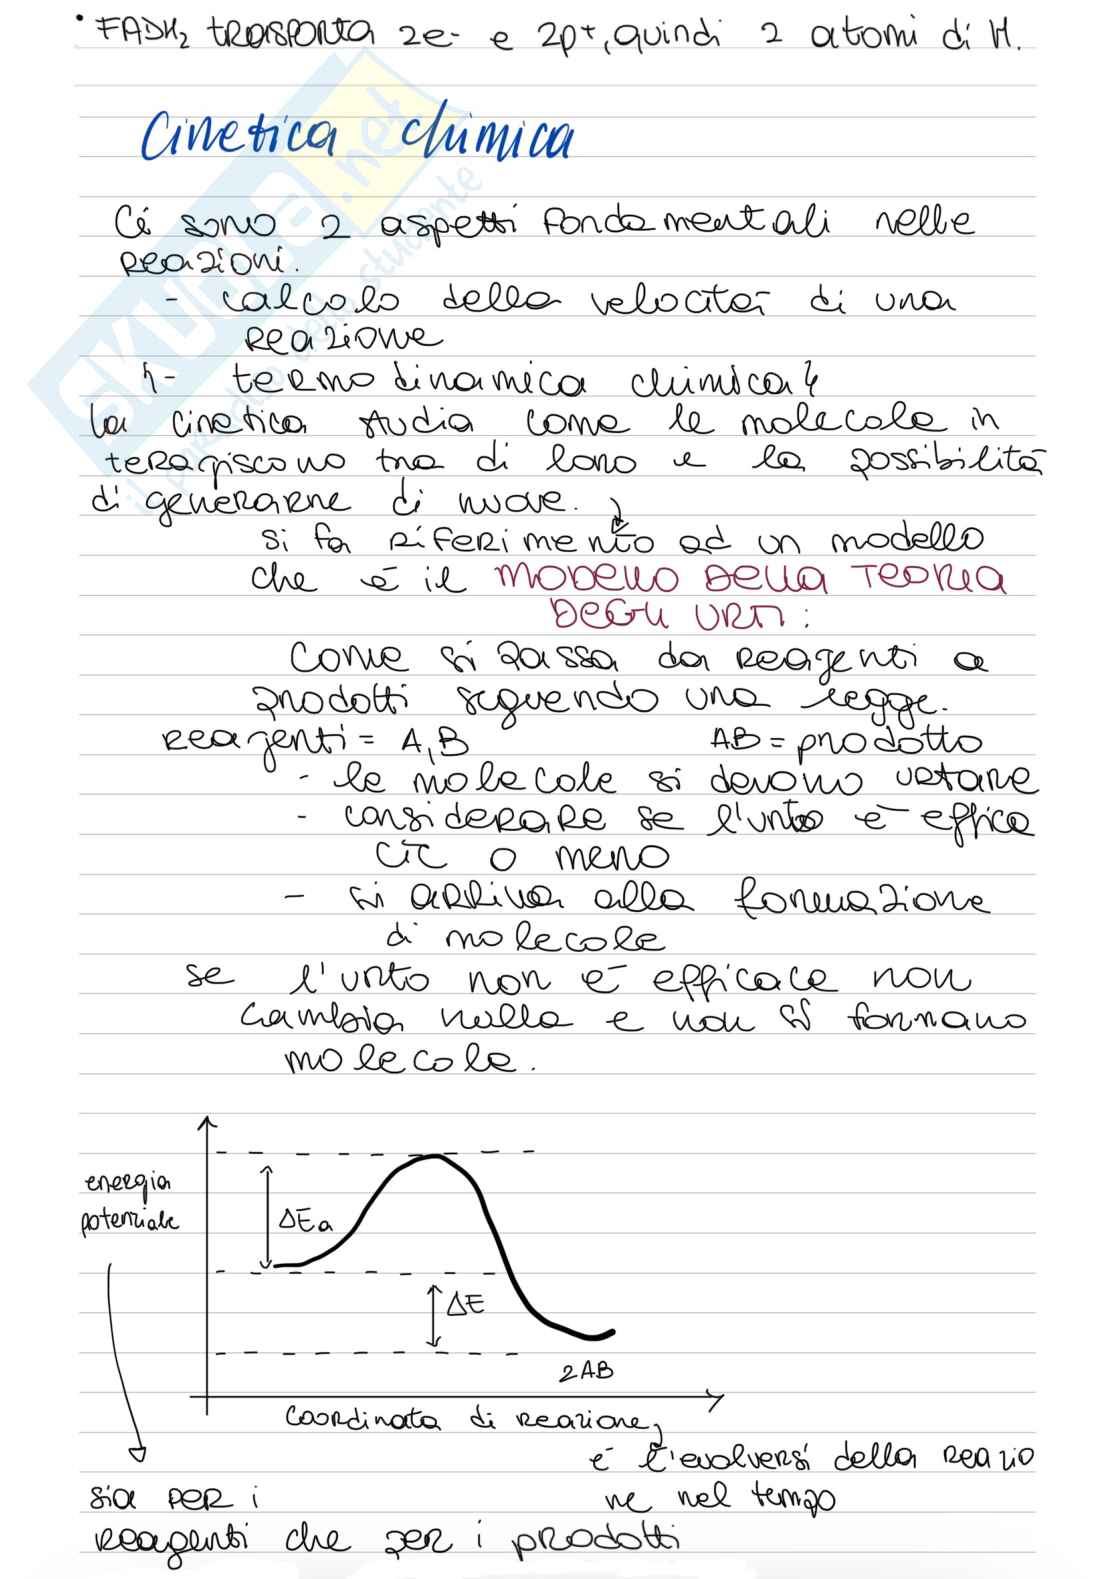 • FADH₂ trasporta 2e⁻ e 2p⁺, quindi 2 atomi di H.
Cinetica chimica
Ci sono 2 aspetti fondamentali nelle
reazioni.
- calcolo della velocità di una
reazione
- termodinamica chimica
La cinetica studia come le molecole in
teragiscono tra di loro e la possibilità
di generarne di nuove.
si fa riferimento ad un modello
che è il MODELLO DELLA TEORIA
DEGLI URTI:
Come si passa da reagenti a
prodotti seguendo una legge.
reagenti = A,B AB = prodotto
- le molecole si devono urtare
- considerare se l'urto è effica
ce o meno
- si arriva alla formazione
di molecole
se l'urto non è efficace non
cambia nulla e non si formano
molecole.
energia
potenziale
ΔEa
ΔE
2AB
Coordinata di reazione
è l'evolversi della reazio
ne nel tempo
sia per i
reagenti che per i prodotti
SKUOLA.net
il paradiso dello studente